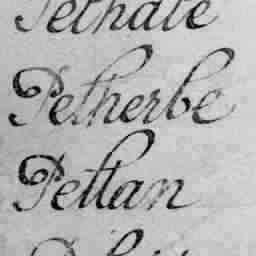 Pethate
Petherbe
Pettan